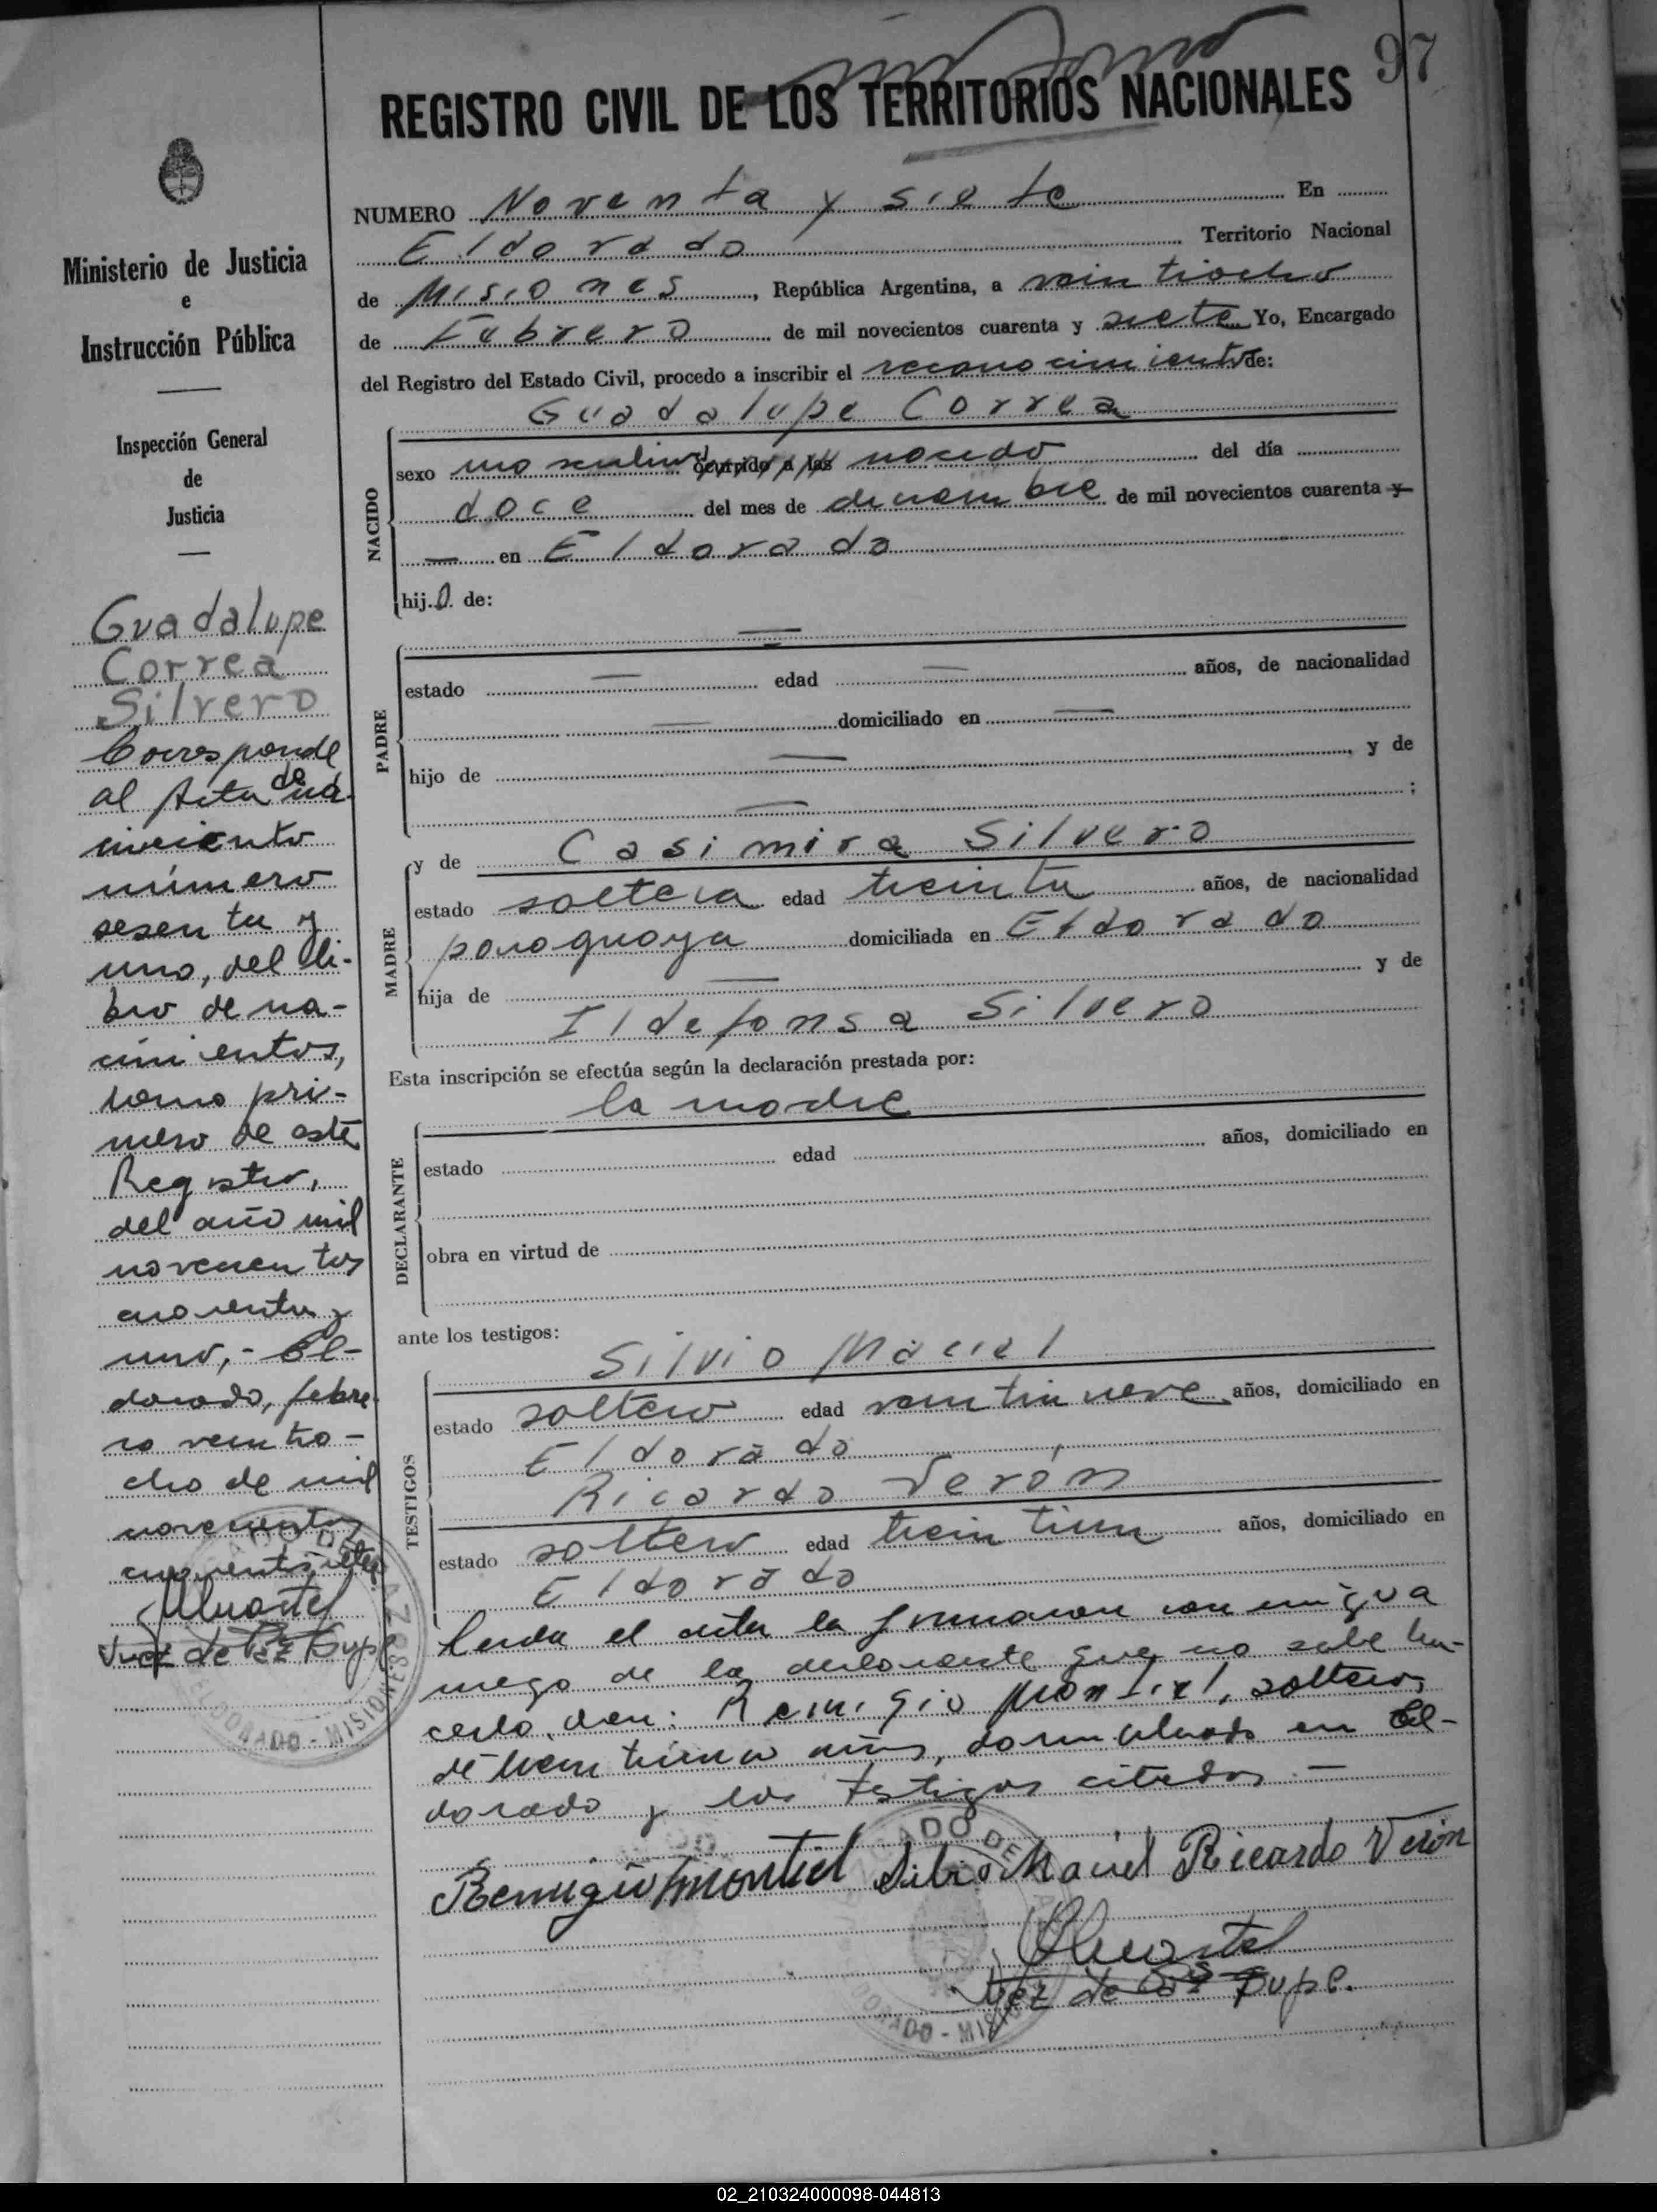 97
REGISTRO CIVIL DE LOS TERRITORIOS NACIONALES
Ministerio de Justicia
e
Instrucción Pública
Inspección General
de
Justicia
Guadalupe
Correa
Silvero
Corresponde
al Acta de na-
cimiento
número
sesenta y
uno, del li-
bro de na-
cimientos,
tomo pri-
mero de este
Registro,
del año mil
novecientos
cuarenta y
uno,- El-
dorado, febre-
ro veintio-
cho de mil
novecientos
cuarentisiete
Juez de Paz Supl
NUMERO Noventa y siete En
Eldorado Territorio Nacional
de Misiones, República Argentina, a veintiocho
de Febrero de mil novecientos cuarenta y siete Yo, Encargado
del Registro del Estado Civil, procedo a inscribir el reconocimiento de:
Guadalupe Correa
NACIDO
sexo masculino ocurrido a las nacido del día
doce del mes de diciembre de mil novecientos cuarenta y
— en Eldorado
hijo de:
PADRE
—
estado — edad — años, de nacionalidad
— domiciliado en —
hijo de — y de
— ;
MADRE
y de Casimira Silvero
estado soltera edad treinta años, de nacionalidad
paraguaya domiciliada en Eldorado
hija de — y de
Ildefonsa Silvero
Esta inscripción se efectúa según la declaración prestada por:
la madre
DECLARANTE
estado edad años, domiciliado en
obra en virtud de
ante los testigos:
TESTIGOS
Silvio Maciel
estado soltero edad veintinueve años, domiciliado en
Eldorado
Ricardo Verón
estado soltero edad treintiun años, domiciliado en
Eldorado
Leida el acta la firmaron conmigo a
ruego de la declarante que no sabe ha-
cerlo, don: Remigio Montiel, soltero,
de treinticinco años, domiciliado en El-
dorado y los testigos citados.—
Remigio Montiel Silvio Maciel Ricardo Verón
Juez de Paz Supl.
ELDORADO - MISIONES
02_210324000098-044813